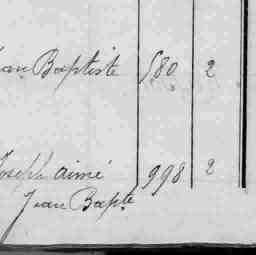 Jean Baptiste 580 2
Joseph aimé 998 2
Jean Bapte